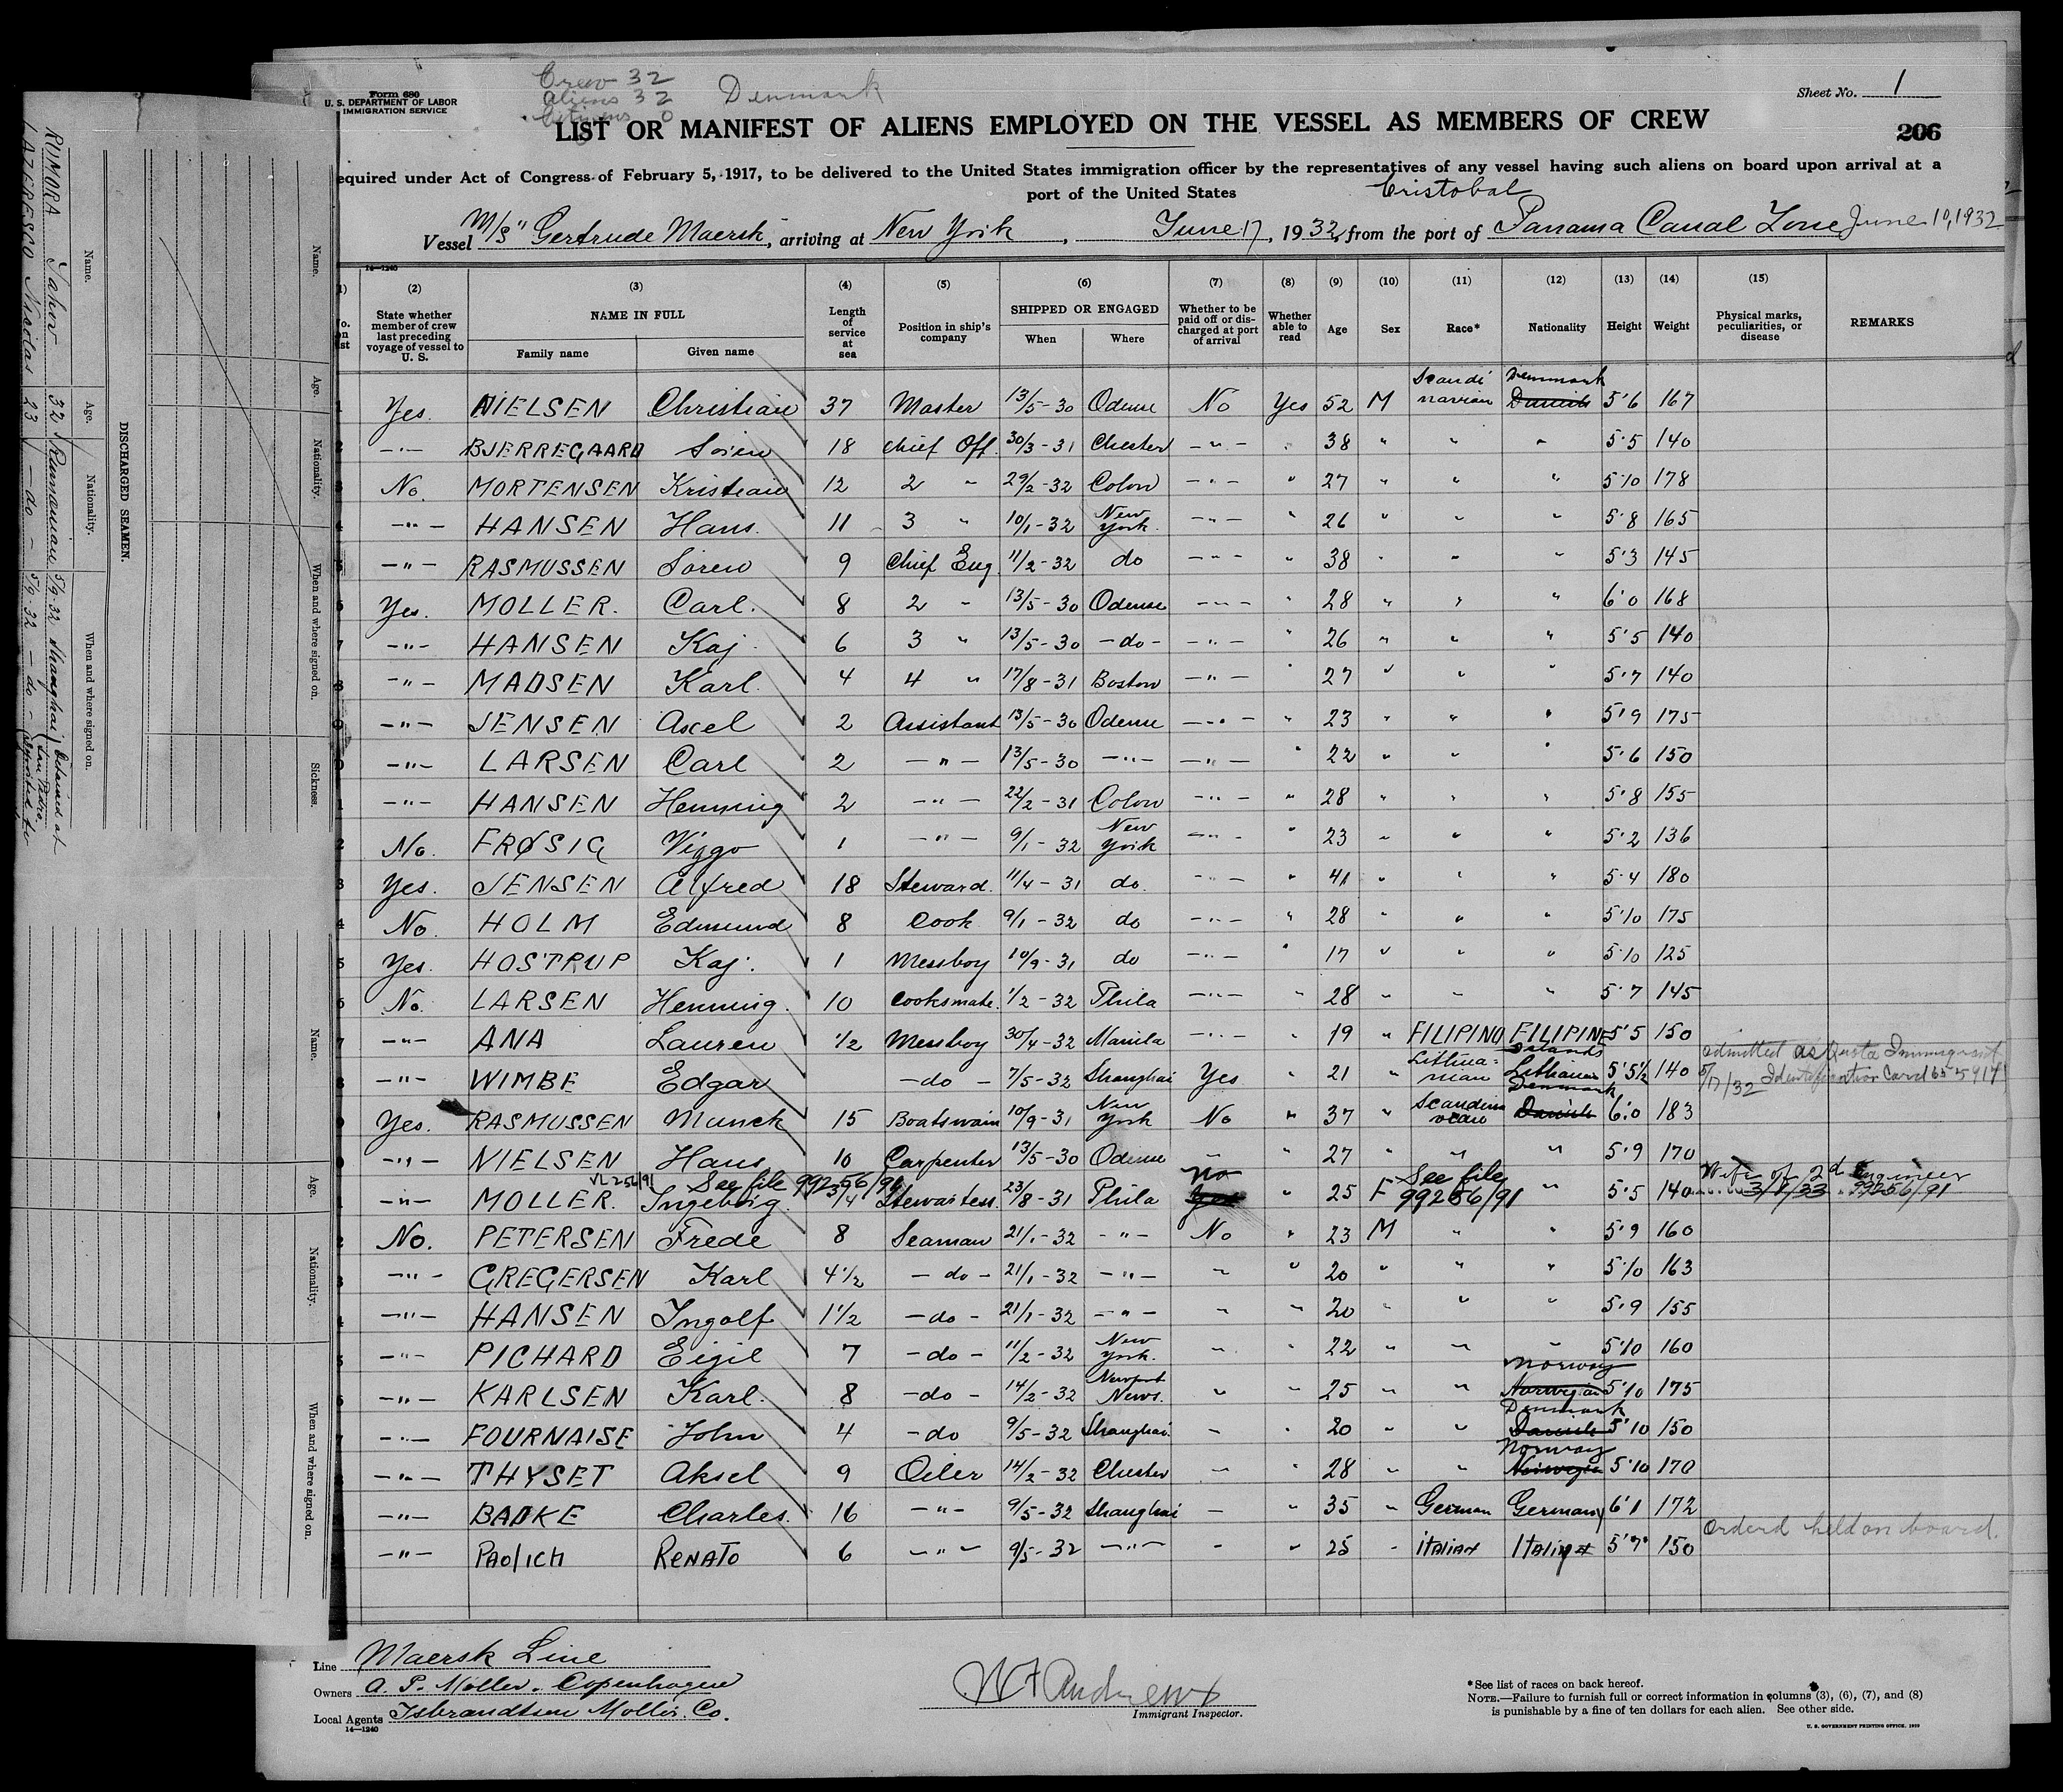 Form 680
U. S. DEPARTMENT OF LABOR
IMMIGRATION SERVICE
Crew 32
Aliens 32
Citizens 0
Denmark
Sheet No. 1
LIST OR MANIFEST OF ALIENS EMPLOYED ON THE VESSEL AS MEMBERS OF CREW
206
equired under Act of Congress of February 5, 1917, to be delivered to the United States immigration officer by the representatives of any vessel having such aliens on board upon arrival at a
port of the United States
Cristobal
Vessel M/S "Gertrude Maersk, arriving at New York, June 17, 1932, from the port of Panama Canal Zone June 10, 1932
14—1240
(2) (3) (4) (5) (6) (7) (8) (9) (10) (11) (12) (13) (14) (15)
State whether member of crew last preceding voyage of vessel to U. S. NAME IN FULL Family name Given name Length of service at sea Position in ship's company SHIPPED OR ENGAGED When Where Whether to be paid off or discharged at port of arrival Whether able to read Age Sex Race* Nationality Height Weight Physical marks, peculiarities, or disease REMARKS
1 Yes. NIELSEN Christian 37 Master 13/5-30 Odense No Yes 52 M Scandinavian Denmark Danish 5'6 167
2 -"- BJERREGAARD Sören 18 Chief Off. 30/3-31 Chester -"- " 38 " " " 5.5 140
3 No. MORTENSEN Kristian 12 2 " 29/2-32 Colon -"- " 27 " " " 5'10 178
4 -"- HANSEN Hans. 11 3 " 10/1-32 New York. -"- " 26 " " " 5'8 165
5 -"- RASMUSSEN Sören 9 Chief Eng. 11/2-32 do -"- " 38 " " " 5'3 145
6 Yes. MOLLER. Carl. 8 2 " 13/5-30 Odense -"- " 28 " " " 6'0 168
7 -"- HANSEN Kaj. 6 3 " 13/5-30 -do- -"- " 26 " " " 5'5 140
8 -"- MADSEN Karl. 4 4 " 17/8-31 Boston -"- " 27 " " " 5'7 140
9 -"- JENSEN Axel 2 Assistant 13/5-30 Odense -"- " 23 " " " 5'9 175
0 -"- LARSEN Carl 2 -"- 13/5-30 -"- -"- " 22 " " " 5'6 150
1 -"- HANSEN Henning 2 -"- 22/2-31 Colon -"- " 28 " " " 5'8 155
2 No. FRØSIG Viggo 1 -"- 9/1-32 New York -"- " 23 " " " 5'2 136
3 Yes. JENSEN Alfred 18 Steward. 11/4-31 do. -"- " 41 " " " 5'4 180
4 No HOLM Edmund 8 Cook 9/1-32 do -"- " 28 " " " 5'10 175
5 Yes. HOSTRUP Kaj. 1 Messboy 10/9-31 do -"- " 17 " " " 5'10 125
6 No. LARSEN Henning. 10 Cooksmate. 1/2-32 Phila -"- " 28 " " " 5'7 145
7 -"- ANA Lauren 1/2 Messboy 30/4-32 Manila -"- " 19 " FILIPINO FILIPINE Islands 5'5 150
8 -"- WIMBE Edgar -do- 7/5-32 Shanghai Yes " 21 " Lithuanian Lithuania 5'5½ 140 Admitted as Quota Immigrant 5/17/32 Identification Card
9 Yes. RASMUSSEN Munck 15 Boatswain 10/9-31 New York No " 37 " Scandinavian Denmark Danish 6'0 183
0 -"- NIELSEN Hans 10 Carpenter 13/5-30 Odense " " 27 " " " 5'9 170
1 -"- MOLLER. Ingeborg. 3/4 Stewartess. 23/8-31 Phila No Yes " 25 F See file 99256/91 " 5'5 140 Wife of 2d Engineer 3/8/33 99256/91
See file 99256/91
2 No. PETERSEN Frede 8 Seaman 21/1-32 -"- No " 23 M " " 5'9 160
3 -"- GREGERSEN Karl 4½ -do- 21/1-32 -"- " " 20 " " " 5'10 163
4 -"- HANSEN Ingolf 1½ -do- 21/1-32 -"- " " 20 " " " 5'9 155
5 -"- PICHARD Eigil 7 -do- 11/2-32 New York. " " 22 " " " 5'10 160
6 -"- KARLSEN Karl. 8 -do- 14/2-32 Newport News. " " 25 " " Norway Norwegian 5'10 175
7 -"- FOURNAISE John 4 -do 9/5-32 Shanghai " " 20 " " Denmark Danish 5'10 150
8 -"- THYSET Aksel 9 Oiler 14/2-32 Chester " " 28 " " Norway Norwegian 5'10 170
-"- BADKE Charles. 16 -"- 9/5-32 Shanghai - " 35 " German Germany 6'1 172
-"- PAOlICH RENATO 6 -"- 9/5-32 -"- - " 25 - iTALIAN ITALIAN 5'7" 150 Orderd held on board.
Line Maersk Line
Owners A. P. Möller. Copenhagen
Local Agents Isbrandtsen Moller. Co.
14—1240
W F Andrews
Immigrant Inspector.
*See list of races on back hereof.
NOTE.—Failure to furnish full or correct information in columns (3), (6), (7), and (8)
is punishable by a fine of ten dollars for each alien. See other side.
U. S. GOVERNMENT PRINTING OFFICE
DISCHARGED SEAMEN.
Name. Age. Nationality. When and where signed on.
RUMORA 32 Rumanian 5/9-32 Shanghai Detained at San Pedro.
LAZERESCO Nicolas 23 -do- 5/9-32 -do-
Name. Age. Nationality. When and where signed on. Sickness.
Name. Age. Nationality. When and where signed on.